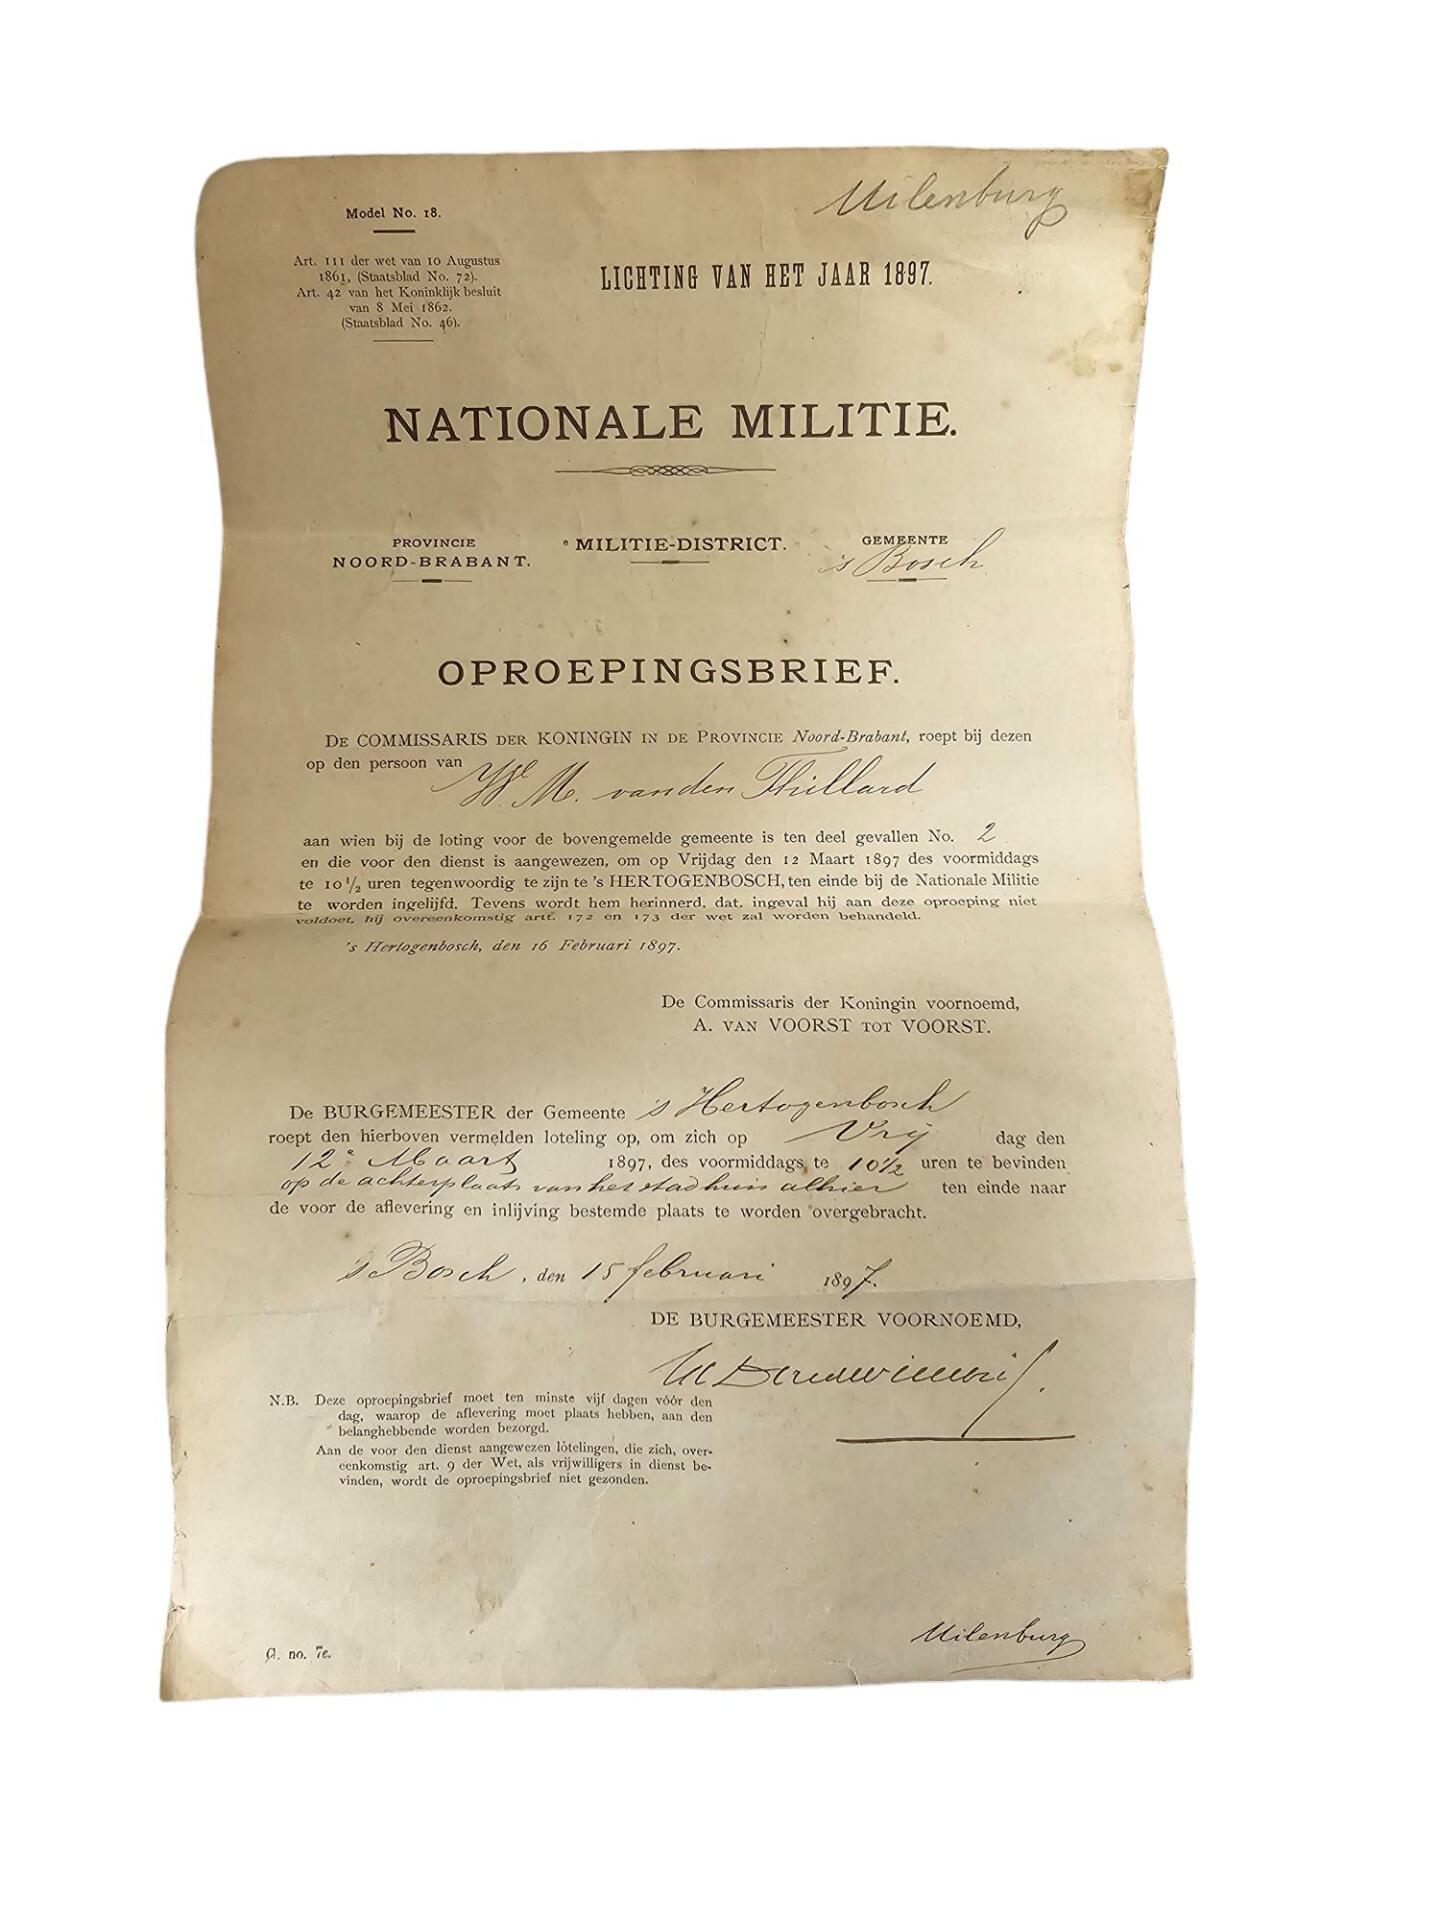 Uilenburg
Model No. 18.
Art. 111 der wet van 10 Augustus
1861, (Staatsblad No. 72).
Art. 42 van het Koninklijk besluit
van 8 Mei 1862.
(Staatsblad No. 46).
LICHTING VAN HET JAAR 1897.
NATIONALE MILITIE.
PROVINCIE
NOORD-BRABANT.
e MILITIE-DISTRICT.
GEMEENTE
's Bosch
OPROEPINGSBRIEF.
DE COMMISSARIS DER KONINGIN IN DE PROVINCIE Noord-Brabant, roept bij dezen
op den persoon van
W. M. van den Thillard
aan wien bij de loting voor de bovengemelde gemeente is ten deel gevallen No. 2
en die voor den dienst is aangewezen, om op Vrijdag den 12 Maart 1897 des voormiddags
te 10 1/2 uren tegenwoordig te zijn te 's HERTOGENBOSCH, ten einde bij de Nationale Militie
te worden ingelijfd. Tevens wordt hem herinnerd, dat, ingeval hij aan deze oproeping niet
voldoet, hij overeenkomstig artt. 172 en 173 der wet zal worden behandeld.
's Hertogenbosch, den 16 Februari 1897.
De Commissaris der Koningin voornoemd,
A. VAN VOORST TOT VOORST.
De BURGEMEESTER der Gemeente 's Hertogenbosch
roept den hierboven vermelden loteling op, om zich op Vrij dag den
12e Maart 1897, des voormiddags te 10 1/2 uren te bevinden
op de achterplaats van het stadhuis alhier ten einde naar
de voor de aflevering en inlijving bestemde plaats te worden overgebracht.
's Bosch, den 15 februari 1897.
DE BURGEMEESTER VOORNOEMD,
N.B. Deze oproepingsbrief moet ten minste vijf dagen vóór den
dag, waarop de aflevering moet plaats hebben, aan den
belanghebbende worden bezorgd.
Aan de voor den dienst aangewezen lotelingen, die zich, over-
eenkomstig art. 9 der Wet, als vrijwilligers in dienst be-
vinden, wordt de oproepingsbrief niet gezonden.
Uilenburg
G. no. 7e.